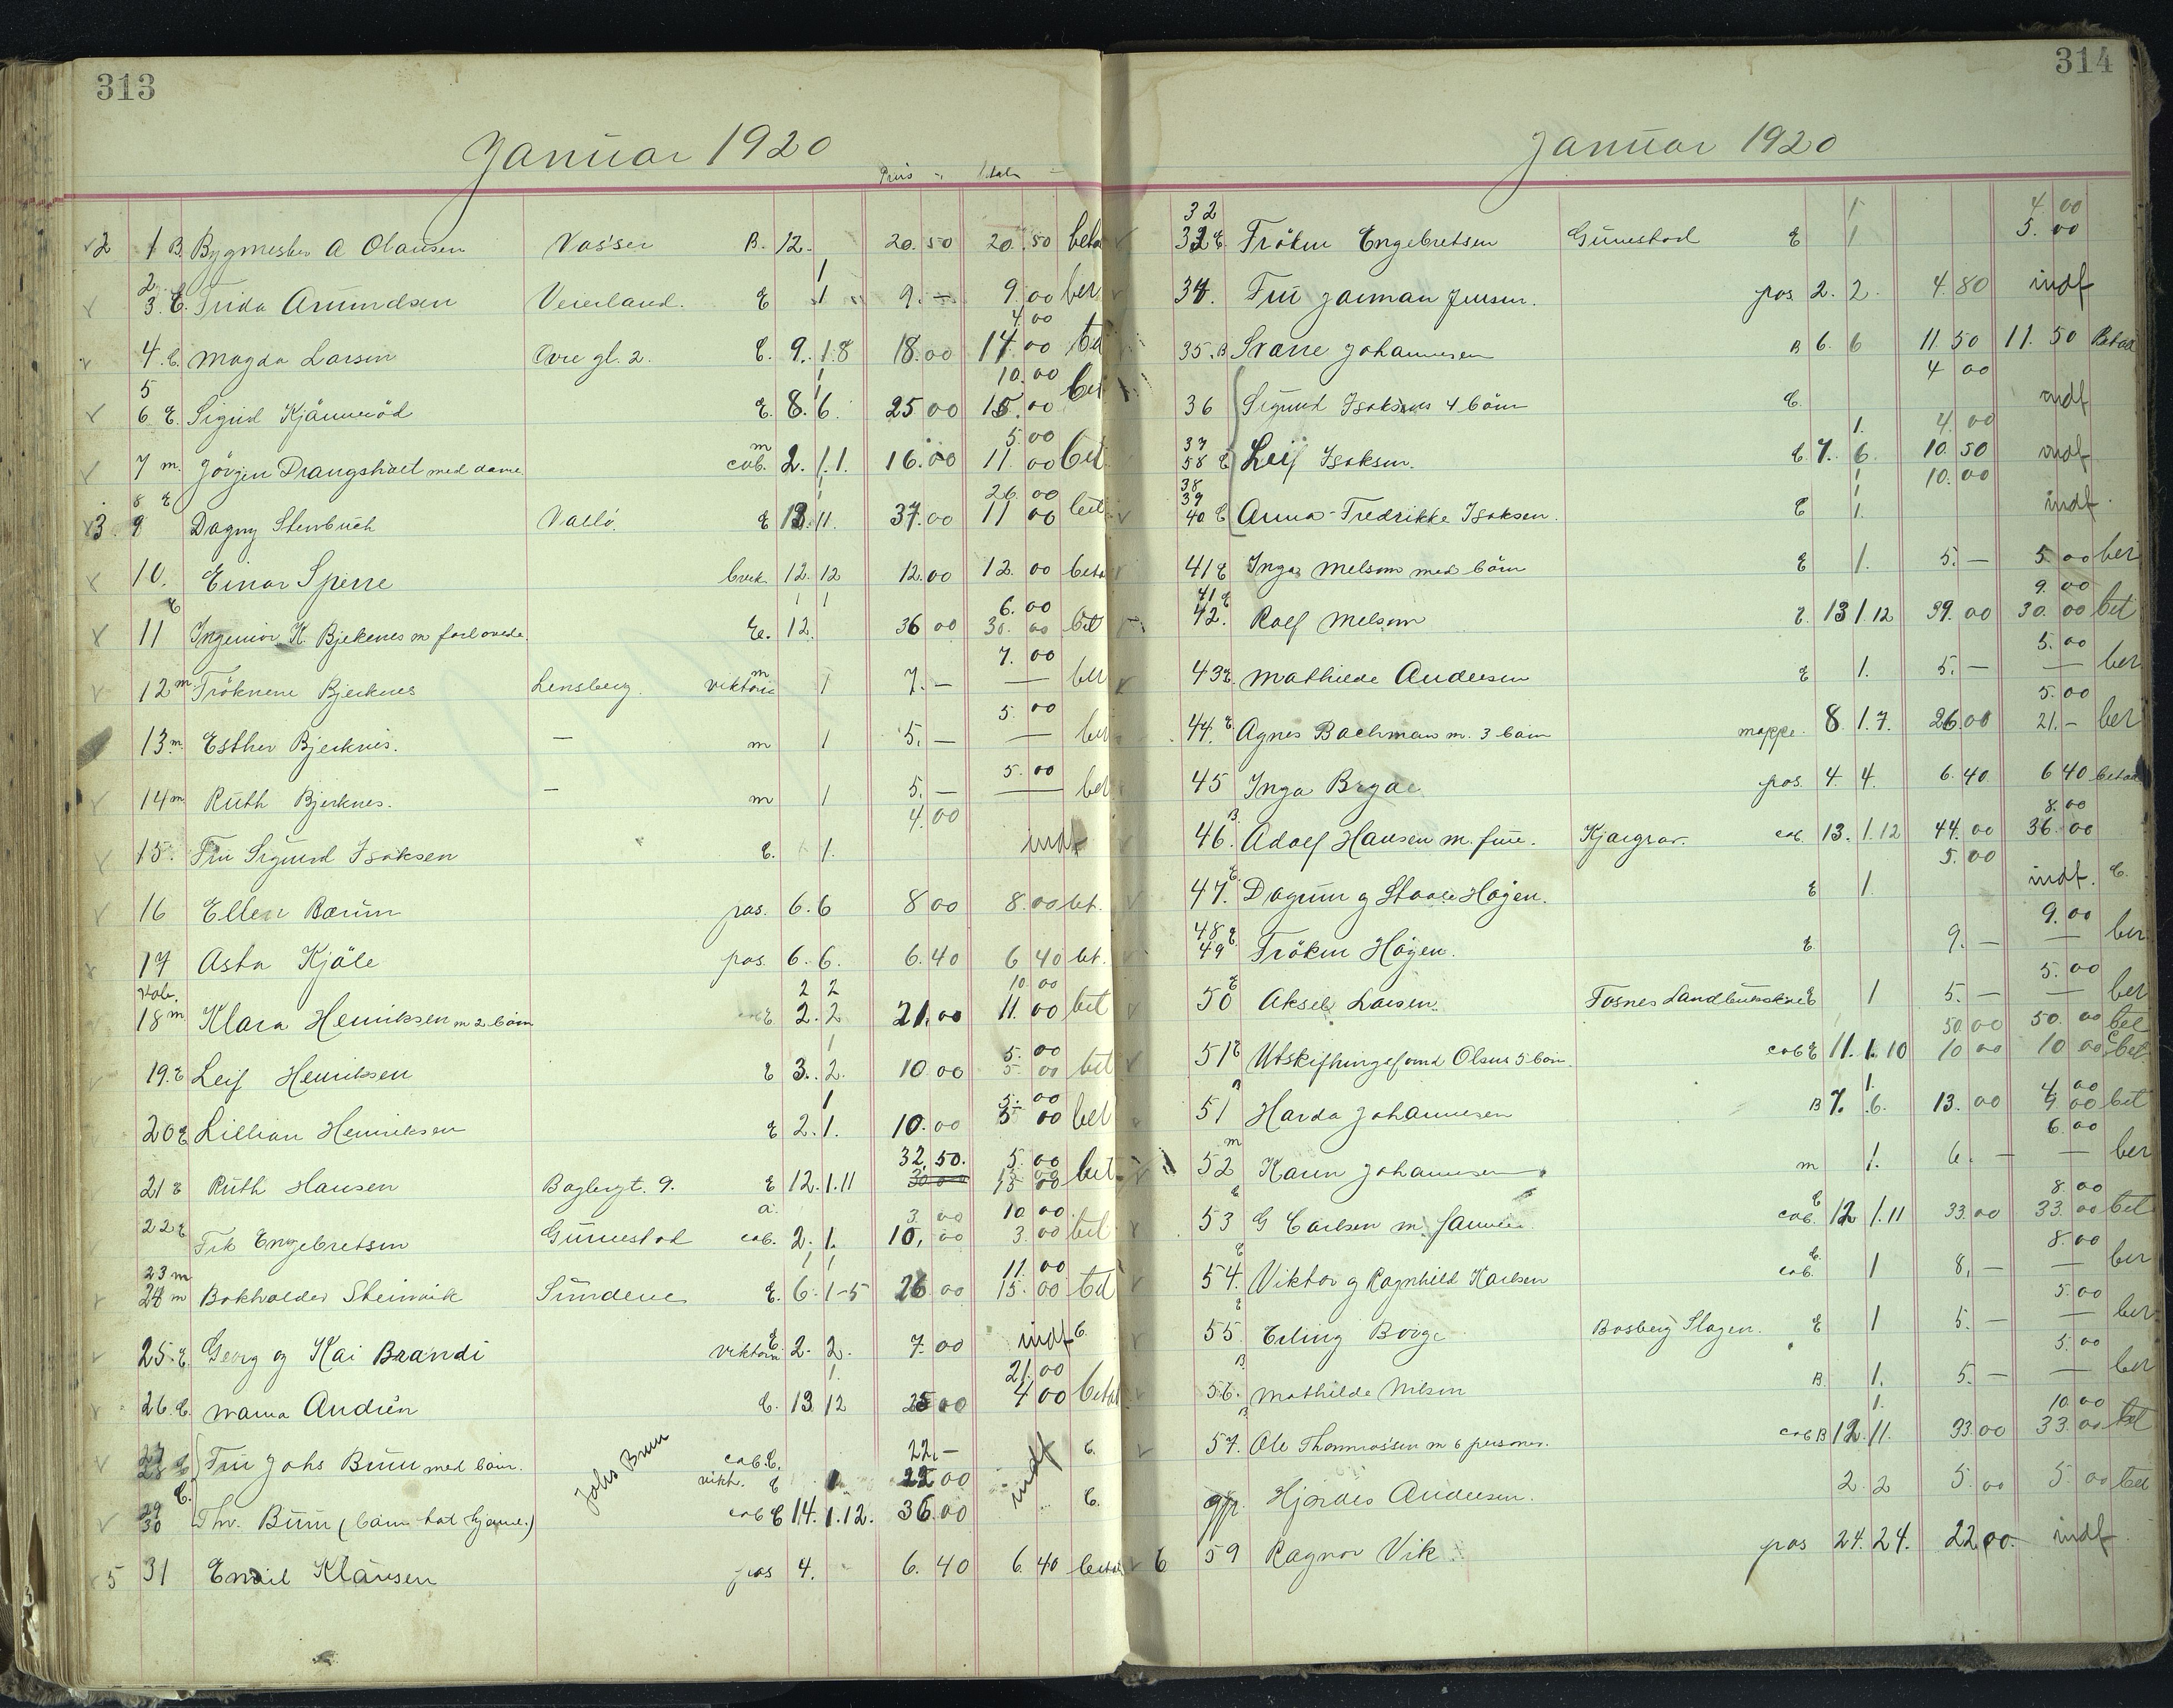 313
Januar 1920
Pris betalt
2 1 B. Bygmester A Olausen Vasser B. 12. 20.50 20.50 beta
2 1
3. E. Frida Amundsen Veierland. E 1 9.— 9.00 ber
4.00
4. E. Magda Larsen Øvre gl. 2. E. 9. 1.8 18.00 14.00 bet
5 1 10.00
6 E. Sigrid Kjønnerød E. 8. 6. 25.00 15.00 bet
m 5.00
7 m. Jörgen Drangsholt med dame cab. 2. 1.1. 16.00 11.00 bet
8 E 1 26.00
3 9 Dagny Stenbuch Vallö. E 13. 11. 37.00 11 00 bet
10. Einar Sperre brek. 12. 12 12.00 12.00 beta
E 1 1 6.00
11 Ingeniör K. Bjeknes m forlovede E. 12. 36 00 30.00 bet
m 7.00
12 m Fröknene Bjerknes Lensberg. viktoria 1 7.— — ber
5.00
13 m. Esther Bjerknes. — m 1 5.— — ber
5.00
14 m Ruth Bjerknes. — m 1 5.— — ber
4.00
15. Fru Sigurd Isaksen E. 1. indf
16 Ellen Bærum pas. 6. 6 8 00 8.00 bet.
17 Asta Kjöle pas. 6. 6. 6.40 6 40 bet.
2 2 10 00
18 m Klara Henriksen m 2 barn E 2. 2 21.00 11.00 bet
1 5.00
19. E Leif Henriksen E 3. 2. 10.00 5.00 bet
1 5.00
20 E Lillian Henriksen E 2. 1. 10.00 5 00 bet
32,50. 5.00
21 E Ruth Hansen Baglergt. 9. E 12. 1.11 30 00 15 00 bet
a. 3.00 10.00
22 E Frk Engebretsen Gunnestad cab. 2. 1. 10,00 3.00 bet
23 m 1 1 11.00
24 m Bokholder Steinvik Sundene E. 6. 1-5 26 00 15.00 bet
E
25. E. Georg og Kai Brandi viktoria 2. 2. 7.00 indf E.
1. 21.00
26. E. Mama Andrén E. 13 12 25 00 4 00 betal
27 22.— E.
28 E Fru Johs Bruun med barn. Johs Bruun cab. E.
vikt. E 1 22 00 indf
29 E.
30 Thv. Bruun (barn hat hjemme.) cab E 14. 1.12. 36.00 E.
5 31 Emil Klausen pas 4. 6.40 6.40 betal
314
Januar 1920
32 1 4.00
32 E. Fröken Engebretsen Gunnestad E 1 5.00
34. Fru Jarman Jensen. pas 2. 2. 4.80 indf
35. B Svarre Johannesen B 6. 6 11.50 11.50 Betal
4 00
36 Sigurd Isaksens 4 barn E. indf
37 1. 4.00
38 E Leif Isaksen. E. 7. 6. 10.50 indf
38 10.00
39 1
40 E Anna-Fredrikke Isaksen. E 1. indf.
41 E Inga Melsom med barn E 1. 5.— 5.00 ber
41 E 9.00
42. Rolf Melsom E. 13 1.12 39.00 30.00 bet
5.00
43 E. Mathilde Andersen E 1. 5.— — ber
5.00
44. E Agnes Bachman m. 3 barn mappe. 8 1.7. 26.00 21.— ber
45 Inga Brgae pas. 4. 4. 6.40 6 40 betal
B. 8.00
46. Adolf Hansen m. frue. Kjærgrav. cab. 13. 1.12 44.00 36.00
5.00
47. E. Dagrun g Staale Högen. E 1. indf. E.
48 E 9.00
49 Fröken Högen. E. 9.— — ber
5.00
50 E Aksel Larsen. Fosnes Landbruksskole E 1 5.— — ber
50.00 50.00 bet
51 E Utskiftningsformd Olsens 5 barn. cab E 11. 1. 10 10 00 10 00 bet
1. 4.00
51 Harda Johannesen B 7. 6. 13.00 9.00 bet
m 6.00
52 Karin Johannesen m 1. 6.— — ber
E 8 00
53 G Carlsen m. familie. cab. E 12 1.11 33.00 33.00 bet
8.00
54. E Viktor g Ragnhild Karlsen cab. E. 1 8,— — ber
5.00
55 E Erling Borge Basberg Slagen. E 1 5.— — ber
5.00
56. B Mathilde Nilsen B. 1. 5.— — ber
1. 10.00
57. B Ole Thommassen m 6 personer. cab B 12. 11. 33.00 33.00 bet
Hjördis Andersen. 2. 2 5.00 5.00 bet
6 59 Ragnar Vik pas 24. 24. 22 00.— indf